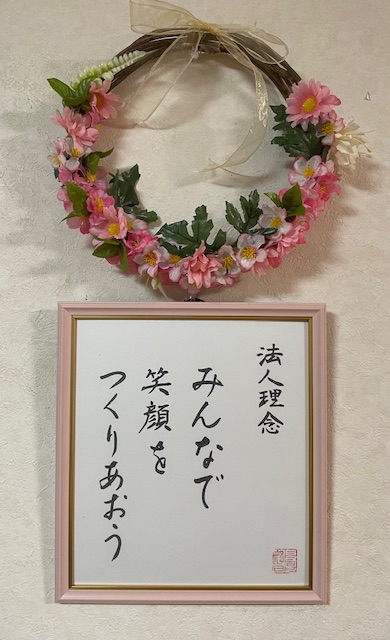 法人理念
みんなで
笑顔を
つくりあおう